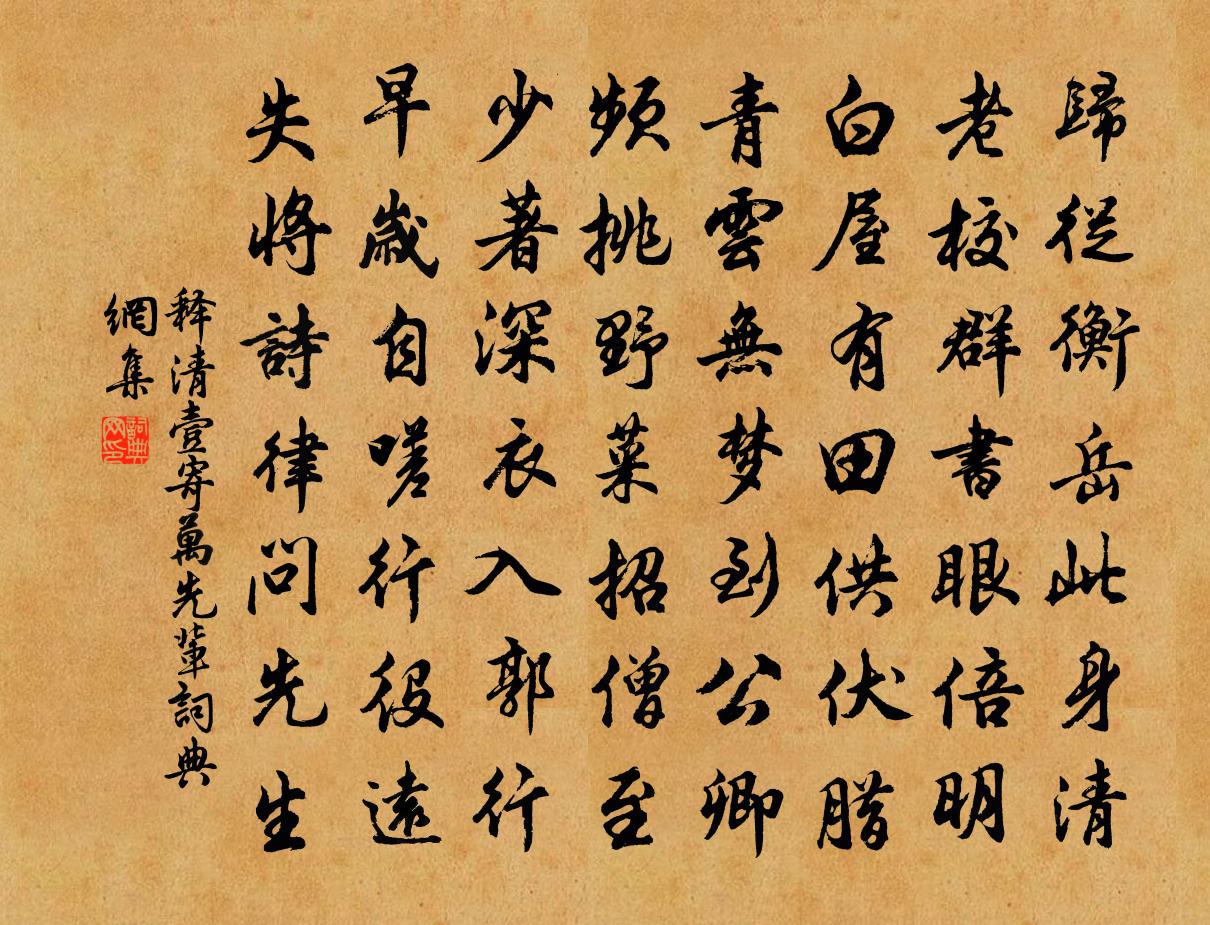 歸從衡岳此身清
老校群書眼倍明
白屋有田供伏腊
青雲無梦到公卿
頻挑野菜招僧至
少著深衣入郭行
早歲自嗟行役遠
失將詩律問先生
释清壹寄萬先輩詞典
網集
詞典
网印